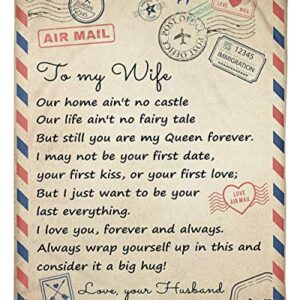 LOVE MAIL
AIR MAIL
POST OFFICE
POST OFFICE
12345
IMMIGRATION
To my Wife
Our home ain't no castle
Our life ain't no fairy tale
But still you are my Queen forever.
I may not be your first date,
your first kiss, or your first love;
But I just want to be your
last everything.
LOVE
AIR MAIL
I love you, forever and always.
Always wrap yourself up in this and
consider it a big hug!
Love, your Husband